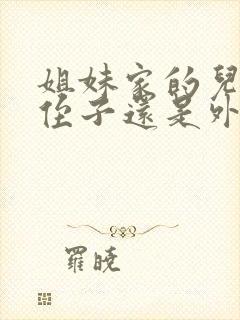 姐妹家的兒
侄子還是外
羅曉